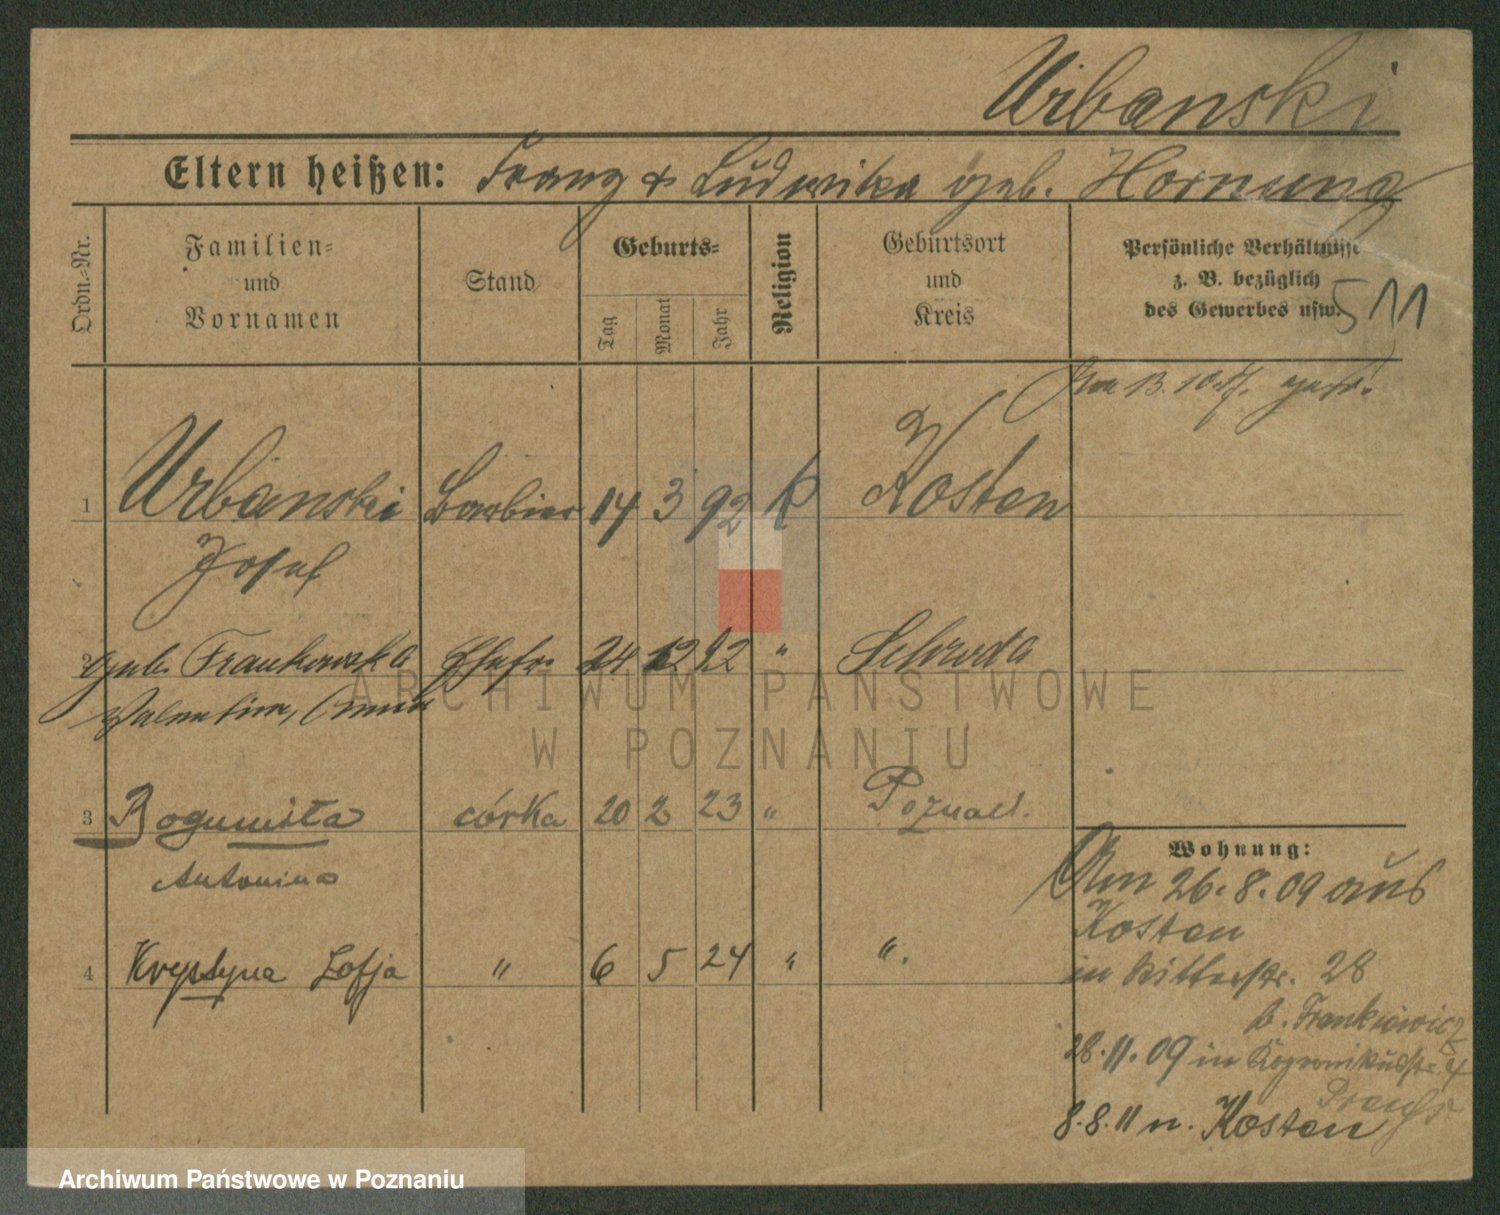 Urbanski
Eltern heißen: Franz & Ludwika geb. Hornung
Ordn.-Nr.
Familien-
und
Vornamen
Stand
Geburts-
Tag
Monat
Jahr
Religion
Geburtsort
und
Kreis
Persönliche Verhältnisse
z. B. bezüglich
des Gewerbes usw.
511
Am 13. 10.
1 Urbanski Barbier 14 3 92 k Kosten
Josef
2 geb. Frankowska Ehefr. 24 12 92 " Schroda
Valentina, Anna
3 Bogumiła córka 20 2 23 " Poznań.
Antonina
4 Krystyna Zofja " 6 5 24 " ".
Wohnung:
Am 26.8.09 aus
Kosten
in Ritterstr. 28
b. Frankiewicz
28.11.09 in Kopernikusstr. 4
8.8.11 n. Kosten
ARCHIWUM PAŃSTWOWE
W POZNANIU
Archiwum Państwowe w Poznaniu